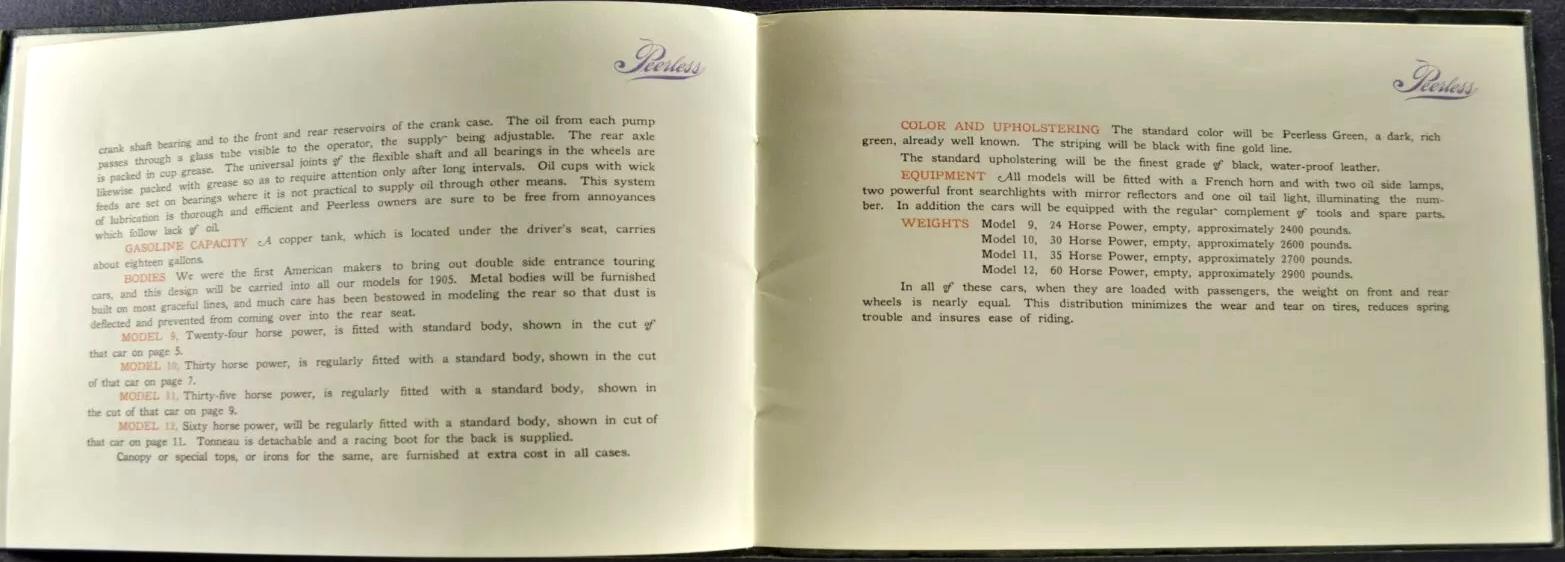 Peerless
crank shaft bearing and to the front and rear reservoirs of the crank case. The oil from each pump
passes through a glass tube visible to the operator, the supply being adjustable. The rear axle
is packed in cup grease. The universal joints of the flexible shaft and all bearings in the wheels are
likewise packed with grease so as to require attention only after long intervals. Oil cups with wick
feeds are set on bearings where it is not practical to supply oil through other means. This system
of lubrication is thorough and efficient and Peerless owners are sure to be free from annoyances
which follow lack of oil.
GASOLINE CAPACITY A copper tank, which is located under the driver's seat, carries
about eighteen gallons.
BODIES We were the first American makers to bring out double side entrance touring
cars, and this design will be carried into all our models for 1905. Metal bodies will be furnished
built on most graceful lines, and much care has been bestowed in modeling the rear so that dust is
deflected and prevented from coming over into the rear seat.
MODEL 9, Twenty-four horse power, is fitted with standard body, shown in the cut of
that car on page 5.
MODEL 10, Thirty horse power, is regularly fitted with a standard body, shown in the cut
of that car on page 7.
MODEL 11, Thirty-five horse power, is regularly fitted with a standard body, shown in
the cut of that car on page 9.
MODEL 12, Sixty horse power, will be regularly fitted with a standard body, shown in cut of
that car on page 11. Tonneau is detachable and a racing boot for the back is supplied.
Canopy or special tops, or irons for the same, are furnished at extra cost in all cases.
Peerless
COLOR AND UPHOLSTERING The standard color will be Peerless Green, a dark, rich
green, already well known. The striping will be black with fine gold line.
The standard upholstering will be the finest grade of black, water-proof leather.
EQUIPMENT All models will be fitted with a French horn and with two oil side lamps,
two powerful front searchlights with mirror reflectors and one oil tail light, illuminating the num-
ber. In addition the cars will be equipped with the regular complement of tools and spare parts.
WEIGHTS Model 9, 24 Horse Power, empty, approximately 2400 pounds.
Model 10, 30 Horse Power, empty, approximately 2600 pounds.
Model 11, 35 Horse Power, empty, approximately 2700 pounds.
Model 12, 60 Horse Power, empty, approximately 2900 pounds.
In all of these cars, when they are loaded with passengers, the weight on front and rear
wheels is nearly equal. This distribution minimizes the wear and tear on tires, reduces spring
trouble and insures ease of riding.